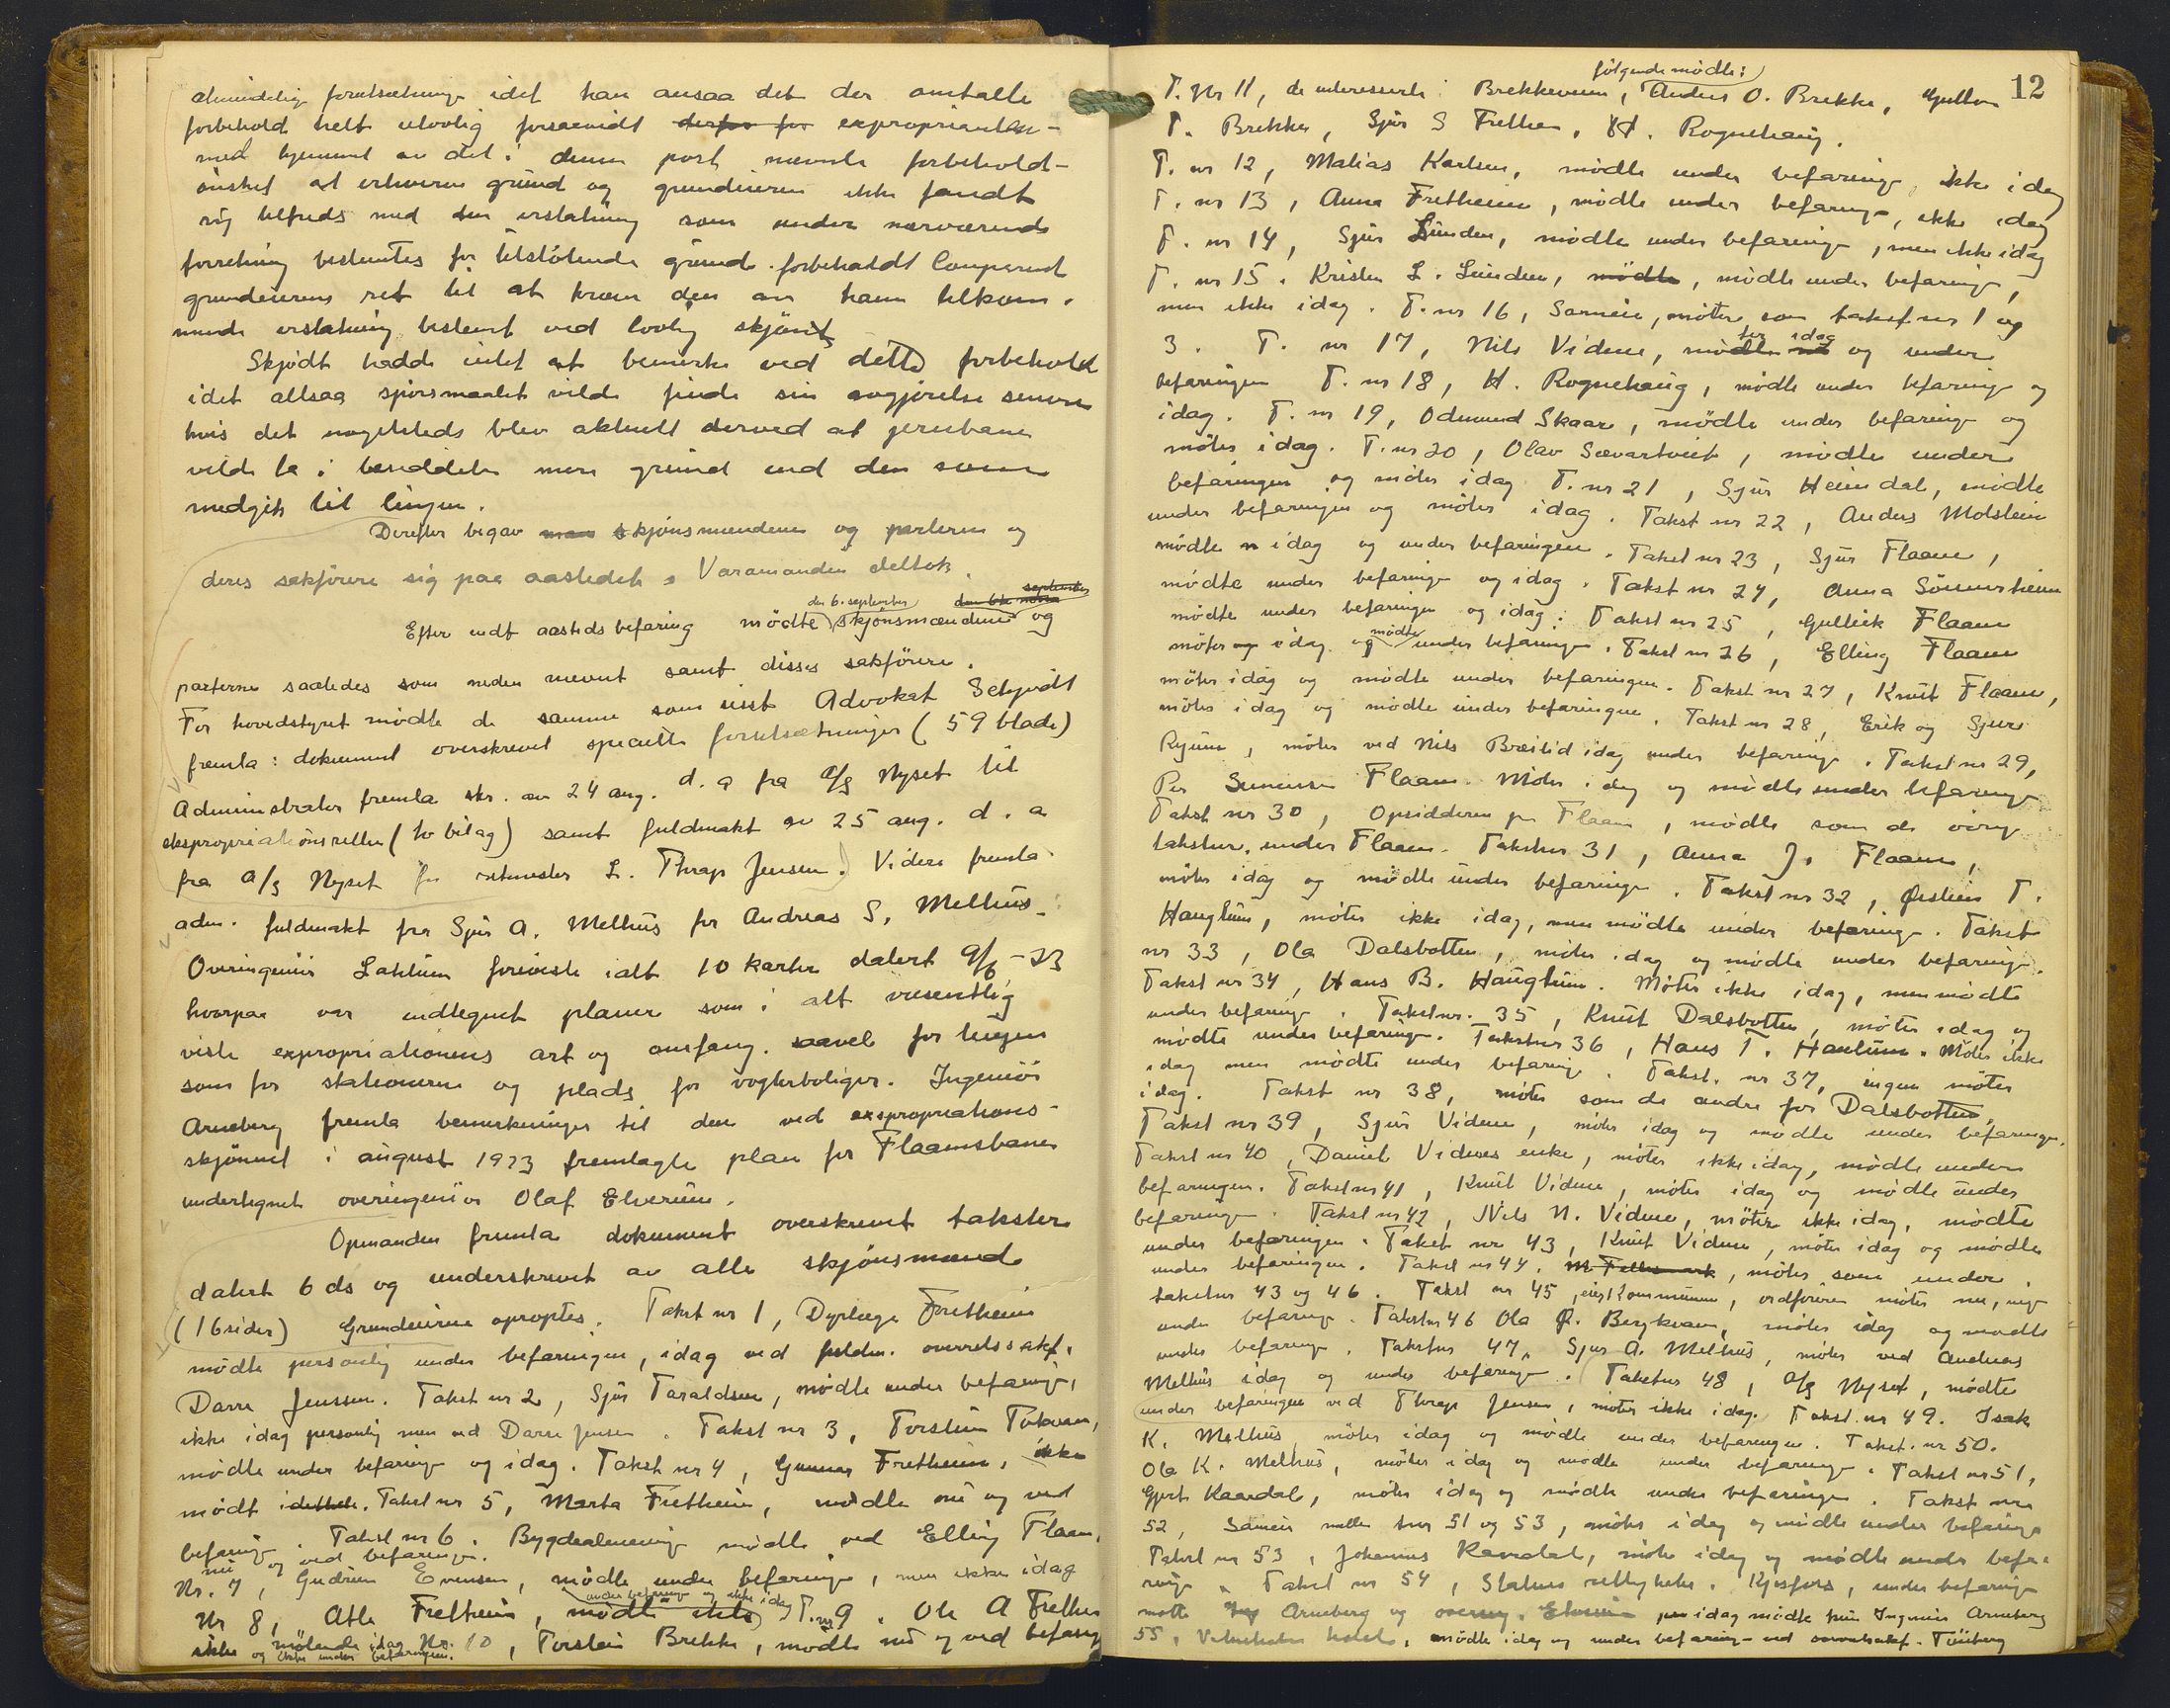 almindelige forutsætninger idet han ansaa det der omtalte
forbehold helt ulovlig forsaavidt derfor for expropriaulen -
med hjemmel av det i denne post nævnte forbehold -
ønsket at erhverve grund og grundeieren ikke fandt
sig tilfreds med den erstatning som under nærværende
forretning bestemtes for tilstøtende grund. forbeholdt Comparent
grundeierens ret til at kræve den av ham tilkom-
mende erstatning bestemt ved lovlig skjønt
Skjødt hadde intet at bemerke ved dette forbehold
idet altsaa spørsmaalet vilde finde sin avgjørelse senere
hvis det nogetsteds blev aktuelt derved at jernbanen
vilde ta i besiddelse mere grund end den som
medgik til linjen.
Derefter begav man skjønsmændene og parterne og
deres sakførere sig paa aastedet. Varamanden deltok.
den 6. september den 6te norsa september
Efter endt aastedsbefaring mødte skjønsmændene og
parterne saaledes som neden nævnt samt disses sakførere.
For hovedstyret mødte de samme som sisst Advokat Schjødt
fremla: dokument overskrevet specielle forutsætninger (59 blade)
Administrator fremla skr. av 24 aug. d. a fra A/S Nyset til
ekspropriationsretten (to bilag) samt fuldmakt av 25 aug. d. a
fra A/S Nyset for retmester L. Thrap Jensen. Videre fremla
adm. fuldmakt fra Sjur A. Melhus for Andreas S. Melhus.
Overingeniør Lahlum foreviste ialt 10 karter datert 9/6 - 23
hvorpaa var indtegnet planer som i alt væsentlig
viste expropriationens art og omfang. saavel for linjen
som for stationerne og plads for vogterboliger. Ingeniør
Arneberg fremla bemerkninger til den ved expropriations-
skjønnet i august 1923 fremlagte plan for Flaamsbanen
undertegnet overingeniør Olaf Elverum.
Opmanden fremla dokument overskrevet takster
datert 6 ds og underskrevet av alle skjønsmænd
(16 sider) Grundeierne oproptes. Takst nr 1, Dyrlæge Fretheim
mødte personlig under befaringen, idag ved fuldm. overretssakf.
Darre Jenssen. Takst nr 2, Sjur Taraldsen, mødte under befaring,
ikke idag personlig men ved Darre Jensen. Takst nr 3, Torstein Tokvam,
mødte under befaring og idag. Takst nr 4, Gunnar Fretheim, ikke
mødt idethele. Takst nr 5, Marta Fretheim, mødte nu og ved
befaring. Takst nr 6. Bygdealmenning mødte ved Elling Flaam,
nu og ved befaringe.
Nr. 7, Gudrun Evensen, mødte under befaringe, men ikke idag
under befaringe og ikke idag
Nr 8, Atle Fretheim, mødte ikke T. nr 9. Ole A Frethei
ikke møtende idag Nr. 10, Torstein Brekke, mødte nu og ved befaring
og ikke under befaringen.
12
følgende mødte:
T. Nr 11, de interesserte i Brekkeveien, Anders O. Brekke, Gullov
T. Brekke, Sjur S Fretheim, H. Rognehaug.
T. nr 12, Matias Karlsen, mødte under befaringe, ikke idag
T. nr 13, Anna Fretheim, mødte under befaringe, ikke idag
T. nr 14, Sjur Lunden, mødte under befaringe, men ikke idag
T. nr 15. Kristen L. Lunden, mødte, mødte under befaringe,
men ikke idag. T. nr 16, Sameie, møter som takst nr 1 og
3. T. nr 17, Nils Vidme, møter idag og under
befaringen T. nr 18, H. Rognehaug, mødte under befaringe og
idag. T. nr 19, Odmund Skaar, mødte under befaringe og
møter idag. T. nr 20, Olav Sævartveit, mødte under
befaringen og møter idag T. nr 21, Sjur Heimdal, mødte
under befaringen og møter idag. Takst nr 22, Anders Molstein
mødte n idag og under befaringen. Takst nr 23, Sjur Flaam,
mødte under befaringe og idag. Takst nr 24, Anna Sønnerheim
mødte under befaringen og idag: Takst nr 25, Gullick Flaam
møter og idag og mødte under befaringe. Takst nr 26, Elling Flaam
møter idag og mødte under befaringen. Takst nr 27, Knut Flaam,
møter idag og mødte under befaringen. Takst nr 28, Erik og Sjur
Ryum, møter ved Nils Breilid idag under befaringe. Takst nr 29,
Per Flaam. Møter idag og mødte under befaringe
Takst nr 30, Opsidderne på Flaam, mødte som de øvrige
takstnr. under Flaam. Takstnr 31, Anna J. Flaam,
møter idag og mødte under befaringe. Takst nr 32, Øistein T.
Hauglum, møter ikke idag, men mødte under befaringe. Takst
nr 33, Ola Dalsbotten, møter idag og mødte under befaringe.
Takst nr 34, Hans B. Hauglum. Møter ikke idag, men mødte
under befaringe. Takstnr. 35, Knut Dalsbotten, møter idag og
mødte under befaringe. Takstnr 36, Hans T. Haulum. Møter ikke
idag men mødte under befaringe. Takst. nr 37, ingen møter
idag. Takst nr 38, møter som de andre for Dalsbotten,
Takst nr 39, Sjur Vidme, møter idag og mødte under befaringen.
Takst nr 40, Daniel Vidmes enke, møter ikke idag, mødte under
befaringen. Takst nr 41, Knut Vidme, møter idag og mødte under
befaringe. Takst nr 42, Nils N. Vidme, møter ikke idag, mødte
under befaringen. Takst nr 43, Knut Vidme, møter idag og mødte
under befaringen. Takst nr 44. , møter som under
takstnr 43 og 46. Takst nr 45, eier Kommunen, ordføreren møter nu,
under befaringe. Takstnr 46 Ola P. Bergkvam, møter idag og mødte
under befaringe. Takstnr 47, Sjur A. Melhus, møter ved Andreas
Melhus idag og under befaringe. Takstnr 48, A/S Nyset, mødte
under befaringen ved Thrap Jensen, møter ikke idag. Takst nr 49. Isak
K. Melhus møter idag og mødte under befaringen. Takst. nr 50.
Ola K. Melhus, møter idag og mødte under befaringe. Takst nr 51,
Gjert Kaardal, møter idag og mødte under befaringe. Takst nr
52, Sameie mellem tnr 51 og 53, møter idag og mødte under befaringe
Takst nr 53, Johannes Kaardal, møter idag og mødte under befa-
ringe. Takst nr 54, Statens rettigheter i Kjosfoss, under befaringe
møtte Arneberg og overing. Elverum idag mødte kun Ingeniør Arneberg
55, Vatnahalsen hotel, mødte idag og under befaring ved overretssakf. Tønberg